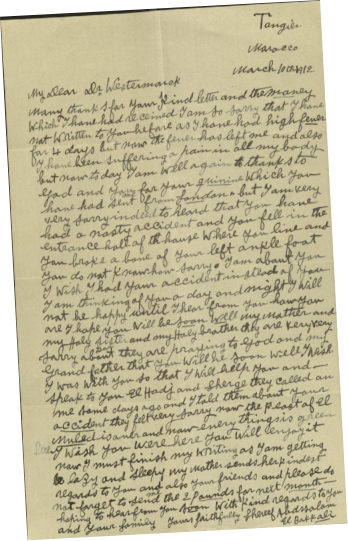 Tangier
Morocco
March 10th 1912
My Dear Dr Westermarck
Many thanks for your kind letter and the money
which I have had received I am so sorry that I have
not written to you before as I have had high fever
for 4 days but now the fever has left me and also
I have been suffering a pain in all my body
but now to day I am well again to thanks to
God and you for your quinine which you
have had sent from London but I am very
very sorry indeed to heard that you have
had a nasty accident and you fell in the
enteance hall of the house where you live and
you broke a bone of your left ankle foat
you do not know how sorry I am about you
I wish I had your accident instead of you
I am thinking of you a day and night I will
not be happy until I hear from you how you
are I hope you will be soon well my mother and
my holy sister and my holy brother they are very very
sorry about they are praying to God and my
grand father that you will be soon well I wish
I was with you so that I will help you and
speak to you El Hadj and Sherge they called an
me some days ago and I told them about your
accident they felt very sorry now the feast of el
Muled is over and now every things is green
I wish you were here you will enjoy it
now I must finish my writing as I am getting
lazy and sleepy my mother sends her kindest
regards to you and also your friends and please do
not forget to send my the 2 pounds for next month
hoping to hear from you soon with kind regards to you
and your family yours faithfully Shereef Abdssalam
El Bakkali